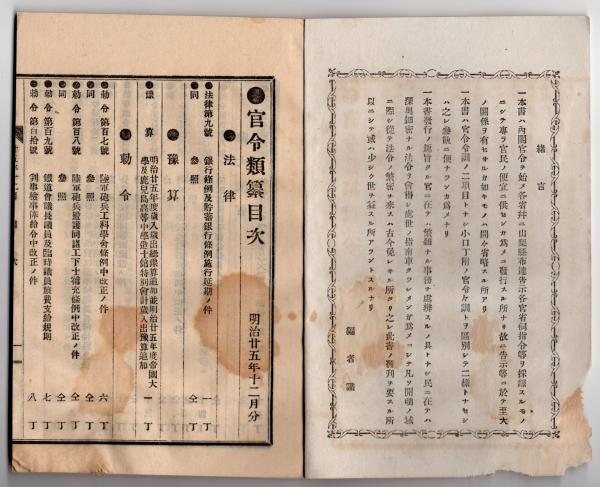 緒言
一本書ハ内閣官令ヲ始メ各省幷ニ山梨縣布達告示各官省伺指令等ヲ採纂スルモノ
ニシテ專ラ官民ノ便宜ニ供センガ爲メニ發行スル所ナリ故ニ告示等ニ於テ至大
ノ關係ヲ有セサルカ如キモノハ間々省略スル所アリ
一本書ハ官令令訓ノ二項目トナシ小口丁附ノ官令々訓トヲ區別シテ二樣トナセシ
ハ之レ參観ニ便ナランカ爲メナリ
一本書發行ノ趣旨タル官ニ在テハ繁雜ナル事務ヲ處辨スルノ具トナシ民ニ在テハ
深奥細密ナル法令ヲ會得シ處世ノ指南車タラシメンガ爲メニシテ凡ソ開明ノ域
ニ際シ從テ法令ノ繁密ヲ來スハ古今免レサル所タリ之レ此書ノ發刊ヲ要スル所
以ニシテ或ハ少シク世ヲ益スル所アラントスルナリ
編者識
官令類纂目次
明治廿五年十二月分
法律
法律第九號 銀行條例及貯蓄銀行條例施行延期ノ件 一丁
同 參照 仝丁
豫算
豫算 明治廿五年度歳入歳出總豫算追加並明治廿五年度帝國大
學及鹿兒島高等中學造士館特別會計歳入出豫算追加 一丁
勅令
勅令第百七號 陸軍砲兵工科學舍條例中改正ノ件 六丁
同 參照 仝丁
勅令第百八號 陸軍砲兵監護同諸工下士補充條例中改正ノ件 仝丁
同 參照 仝丁
勅令第百九號 鐵道會議長議員及臨時議員旅費支給規則 七丁
勅令第百拾號 判事檢事俸給令中改正ノ件 八丁